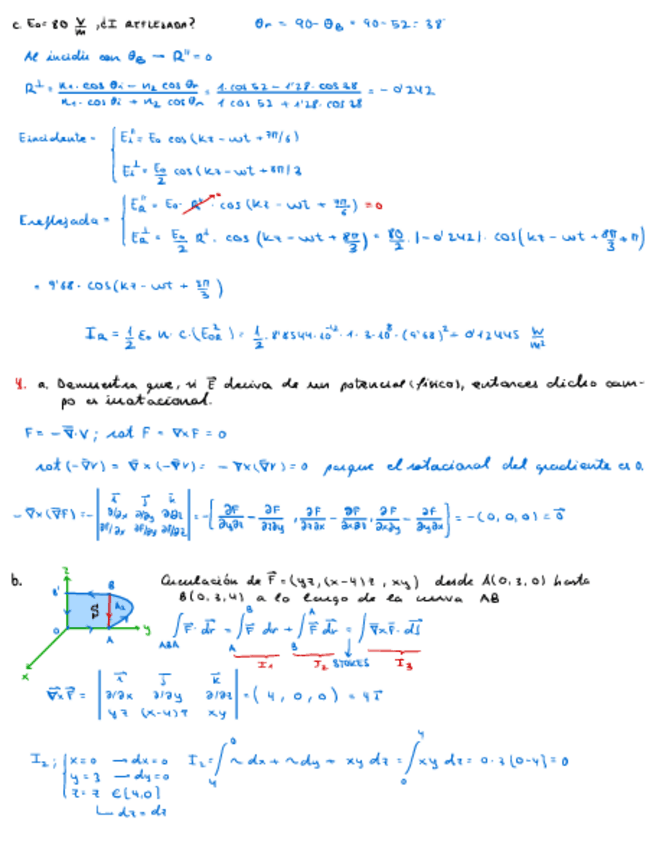 c. E₀ = 80 V/m, ¿I REFLEJADA? θr = 90 - θB = 90 - 52 = 38°
Al incidir con θB → R" = 0
R⊥ = (n₁ · cos θi - n₂ cos θr) / (n₁ · cos θi + n₂ cos θr) = (1 · cos 52 - 1'28 · cos 38) / (1 cos 52 + 1'28 · cos 38) = - 0'242
Eincidente = { Ei" = E₀ cos (kz - wt + 7π/6)
Ei⊥ = E₀/2 cos (kz - wt + 8π/3
Ereflejada = { ER" = E₀ · R" · cos (kz - wt + 7π/6) = 0
ER⊥ = E₀/2 R⊥ · cos (kz - wt + 8π/3) = 80/2 · |-0'242| · cos (kz - wt + 8π/3 + π)
= 9'68 · cos (kz - wt + π/3)
IR = 1/2 ε₀ n · c · (E₀R²) = 1/2 · 8'8544 · 10⁻¹² · 1 · 3 · 10⁸ · (9'68)² = 0'12445 W/m²
4. a. Demuestra que, si E⃗ deriva de un potencial (físico), entonces dicho cam-
po es irrotacional.
F = - ∇⃗ · V ; rot F = ∇ x F = 0
rot (-∇⃗V) = ∇⃗ x (-∇⃗V) = - ∇ x (∇⃗V) = 0 porque el rotacional del gradiente es 0.
- ∇ x (∇⃗F) = - | i⃗ j⃗ k⃗ ; ∂/∂x ∂/∂y ∂/∂z ; ∂F/∂x ∂F/∂y ∂F/∂z | = - [ ∂F/∂y∂z - ∂F/∂z∂y , ∂F/∂z∂x - ∂F/∂x∂z , ∂F/∂x∂y - ∂F/∂y∂x ] = - (0, 0, 0) = 0⃗
b. Circulación de F⃗ = (yz, (x-4)z, xy) desde A(0, 3, 0) hasta
B(0, 3, 4) a lo largo de la curva AB
z B' B S A O A y x
∫ABA F⃗ · dr⃗ = ∫A^B F⃗ dr + ∫B^A F⃗ dr⃗ = ∫ ∇⃗xF⃗ · dS⃗
I₁ I₂ STOKES I₃
∇⃗xF⃗ = | i⃗ j⃗ k⃗ ; ∂/∂x ∂/∂y ∂/∂z ; yz (x-4)z xy | = (4, 0, 0) = 4i⃗
I₂ ; { x = 0 → dx = 0 I₂ = ∫₄⁰ ~ dx + ~ dy + xy dz = ∫₀⁴ xy dz = 0 · 3 (0-4) = 0
y = 3 → dy = 0
z = z ∈ [4,0]
↳ dz = dz